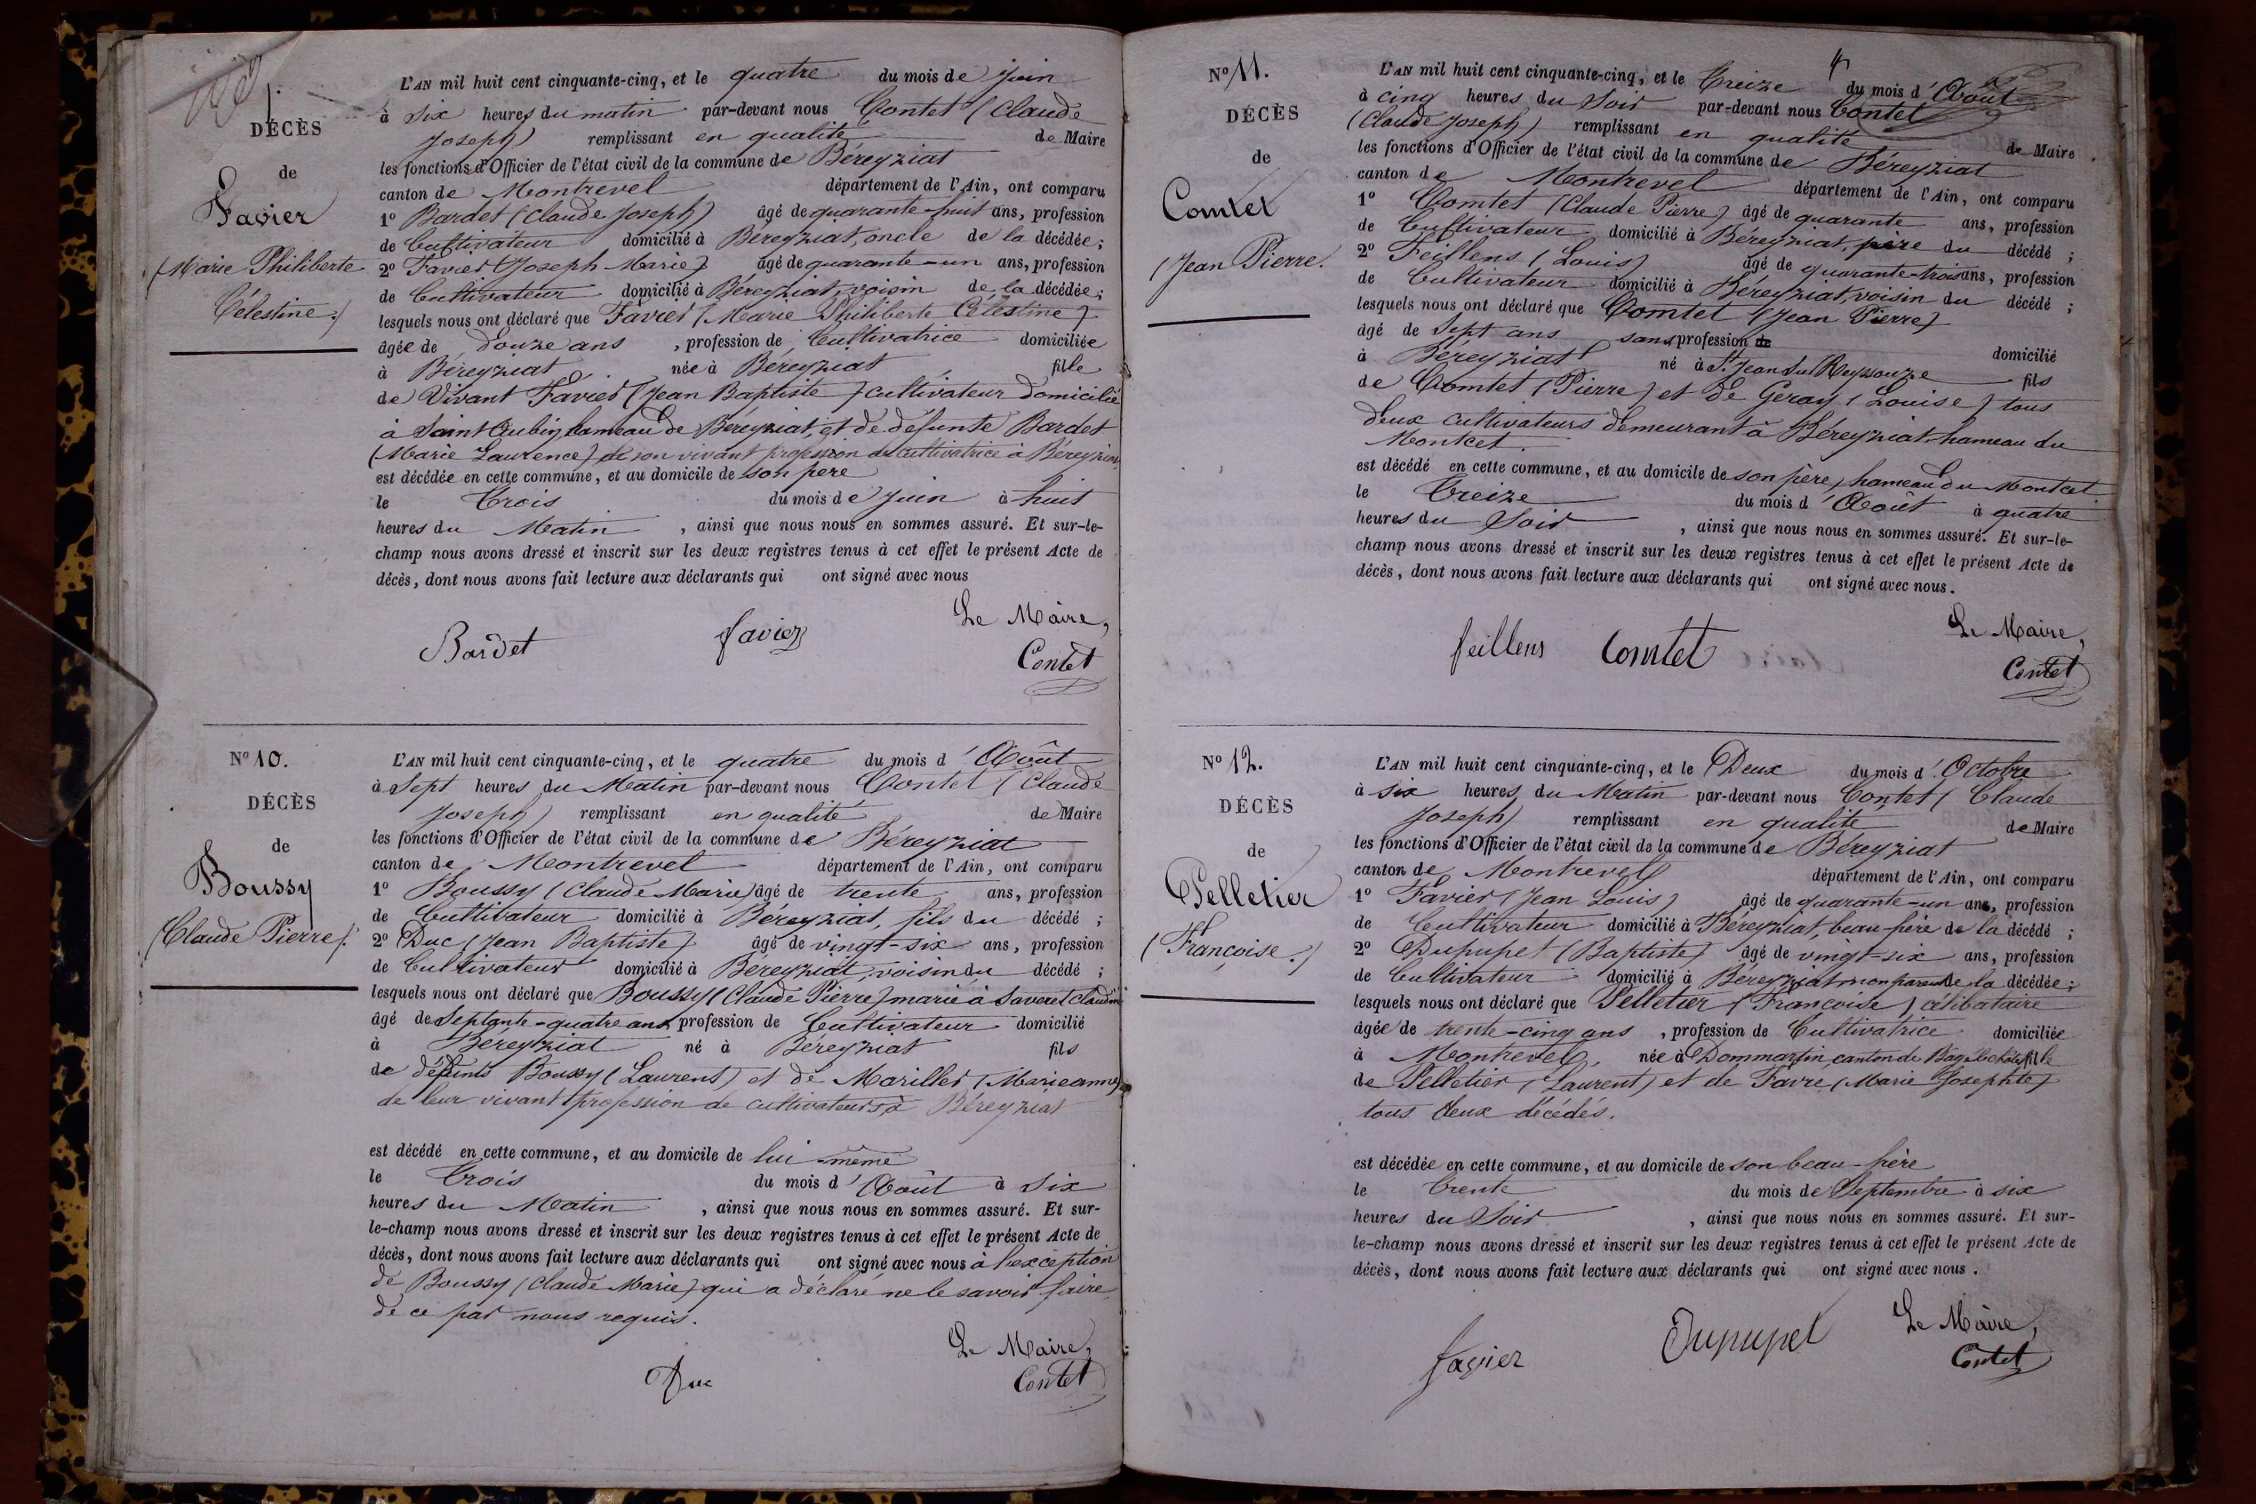 DÉCÈS
de
Favier
(Marie Philiberte
Célestine.)
L'AN mil huit cent cinquante-cinq, et le quatre du mois de Juin
à six heures du matin par-devant nous Contet (Claude
Joseph) remplissant en qualité de Maire
les fonctions d'Officier de l'état civil de la commune de Béreyziat
canton de Montrevel département de l'Ain, ont comparu
1° Bardet (Claude Joseph) âgé de quarante-huit ans, profession
de Cultivateur domicilié à Béreyziat, oncle de la décédée;
2° Favier (Joseph Marie) âgé de quarante-un ans, profession
de Cultivateur domicilié à Béreyziat, voisin de la décédée;
lesquels nous ont déclaré que Favier (Marie Philiberte Célestine)
âgée de douze ans, profession de Cultivatrice domiciliée
à Béreyziat née à Béreyziat fille
de Vivant Favier (Jean Baptiste) cultivateur domicilié
à Saint Aubin hameau de Béreyziat, et de défunte Bardet
(Marie Laurence) de son vivant profession de cultivatrice à Béreyziat
est décédée en cette commune, et au domicile de son père
le Trois du mois de Juin à huit
heures du Matin, ainsi que nous nous en sommes assuré. Et sur-le-
champ nous avons dressé et inscrit sur les deux registres tenus à cet effet le présent Acte de
décès, dont nous avons fait lecture aux déclarants qui ont signé avec nous
Le Maire,
Bardet favier Contet
N° 10.
DÉCÈS
de
Boussy
(Claude Pierre).
L'AN mil huit cent cinquante-cinq, et le quatre du mois d'Août
à Sept heures du Matin par-devant nous Contet (Claude
Joseph) remplissant en qualité de Maire
les fonctions d'Officier de l'état civil de la commune de Béreyziat
canton de Montrevel département de l'Ain, ont comparu
1° Boussy (Claude Marie) âgé de trente ans, profession
de Cultivateur domicilié à Béreyziat, fils du décédé;
2° Duc (Jean Baptiste) âgé de vingt-six ans, profession
de Cultivateur domicilié à Béreyziat, voisin du décédé;
lesquels nous ont déclaré que Boussy (Claude Pierre) marié à
âgé de Septante-quatre ans, profession de Cultivateur domicilié
à Béreyziat né à Béreyziat fils
de défunts Boussy (Laurent) et de Morillet (Marieanne)
de leur vivant profession de cultivateurs à Béreyziat
est décédé en cette commune, et au domicile de lui-même
le Trois du mois d'Août à six
heures du Matin, ainsi que nous nous en sommes assuré. Et sur-
le-champ nous avons dressé et inscrit sur les deux registres tenus à cet effet le présent Acte de
décès, dont nous avons fait lecture aux déclarants qui ont signé avec nous à l'exception
de Boussy (Claude Marie) qui a déclaré ne le savoir faire
de ce par nous requis.
Le Maire,
Duc Contet
N° 11.
DÉCÈS
de
Comtet
(Jean Pierre.
L'AN mil huit cent cinquante-cinq, et le Treize du mois d'Août
à cinq heures du Soir par-devant nous Contet
(Claude Joseph) remplissant en qualité de Maire
les fonctions d'Officier de l'état civil de la commune de Béreyziat
canton de Montrevel département de l'Ain, ont comparu
1° Comtet (Claude Pierre) âgé de quarante ans, profession
de Cultivateur domicilié à Béreyziat, père du décédé;
2° Feillens (Louis) âgé de quarante-trois ans, profession
de Cultivateur domicilié à Béreyziat, voisin du décédé;
lesquels nous ont déclaré que Comtet (Jean Pierre)
âgé de Sept ans sans profession de domicilié
à Béreyziat né à St. Jean sur Reyssouze fils
de Comtet (Pierre) et de Geray (Louise) tous
deux cultivateurs demeurant à Béreyziat, hameau du
Montcet.
est décédé en cette commune, et au domicile de son père, hameau du Montcet
le Treize du mois d'Août à quatre
heures du Soir, ainsi que nous nous en sommes assuré. Et sur-le-
champ nous avons dressé et inscrit sur les deux registres tenus à cet effet le présent Acte de
décès, dont nous avons fait lecture aux déclarants qui ont signé avec nous.
Le Maire,
feillens Comtet Contet
N° 12.
DÉCÈS
de
Pelletier
(Françoise.)
L'AN mil huit cent cinquante-cinq, et le Deux du mois d'Octobre
à six heures du Matin par-devant nous Contet (Claude
Joseph) remplissant en qualité de Maire
les fonctions d'Officier de l'état civil de la commune de Béreyziat
canton de Montrevel département de l'Ain, ont comparu
1° Favier (Jean Louis) âgé de quarante-un ans, profession
de Cultivateur domicilié à Béreyziat, beau-frère de la décédé;
2° Dupupet (Baptiste) âgé de vingt-six ans, profession
de Cultivateur domicilié à Béreyziat non parent de la décédée;
lesquels nous ont déclaré que Pelletier (Françoise), célibataire
âgée de trente-cinq ans, profession de Cultivatrice domiciliée
à Montrevel, née à Dommartin, canton de Bagé-le-châtel fille
de Pelletier (Laurent) et de Favre (Marie Josephte)
tous deux décédés.
est décédée en cette commune, et au domicile de son beau-frère
le Trente du mois de Septembre à six
heures du Soir, ainsi que nous nous en sommes assuré. Et sur-
le-champ nous avons dressé et inscrit sur les deux registres tenus à cet effet le présent Acte de
décès, dont nous avons fait lecture aux déclarants qui ont signé avec nous.
Le Maire,
favier Dupupet Contet